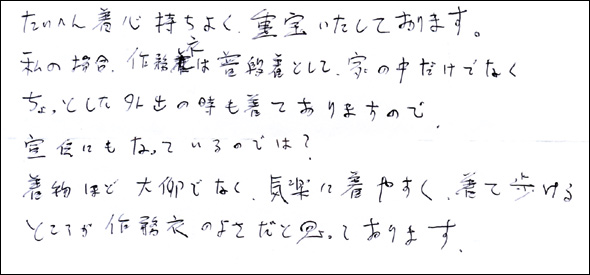 たいへん着心持ちよく、重宝いたしております。
私の場合、作務衣は普段着として、家の中だけでなく
ちょっとした外出の時も着ておりますので、
宣伝にもなっているのでは?
着物ほど大仰でなく、気楽に着やすく、着て歩ける
ところが作務衣のよさだと思っております。